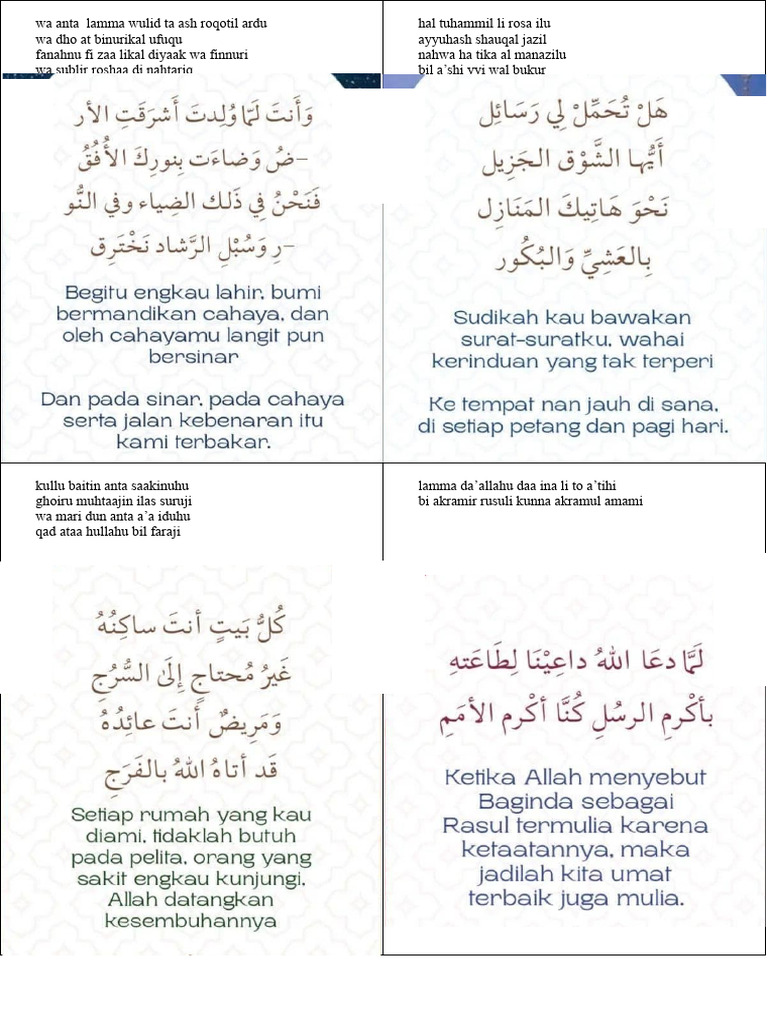 wa anta  lamma wulid ta ash roqotil ardu
wa dho at binurikal ufuqu
fanahnu fi zaa likal diyaak wa finnuri
wa sublir roshaa di nahtariq
وَأَنتَ لَمَّا وُلِدتَ أَشرَقَتِ الأر
-ضُ وَضاءَت بِنورِكَ الأُفُقُ
فَنَحْنُ فِي ذَلكَ الضِياء وفي النُّو
-رِ وَسُبْلِ الرَّشاد نَخْتَرِق
Begitu engkau lahir, bumi
bermandikan cahaya, dan
oleh cahayamu langit pun
bersinar
Dan pada sinar, pada cahaya
serta jalan kebenaran itu
kami terbakar.
hal tuhammil li rosa ilu
ayyuhash shauqal jazil
nahwa ha tika al manazilu
bil a’shi yyi wal bukur
هَلْ تُحَمِّلْ لِي رَسَائِل
أَيُّها الشَّوْق الجَزِيل
نَحْوَ هَاتِيكَ المَنَازِل
بِالعَشِيِّ وَالبُكُور
Sudikah kau bawakan
surat-suratku, wahai
kerinduan yang tak terperi
Ke tempat nan jauh di sana,
di setiap petang dan pagi hari.
kullu baitin anta saakinuhu
ghoiru muhtaajin ilas suruji
wa mari dun anta a’a iduhu
qad ataa hullahu bil faraji
كُلُّ بَيتٍ أنتَ ساكِنُهُ
غَيرُ مُحتاجٍ إِلَى السُّرُجِ
وَمَرِيضٌ أنتَ عائِدُهُ
قَد أتاهُ اللهُ بالفَرَجِ
Setiap rumah yang kau
diami, tidaklah butuh
pada pelita, orang yang
sakit engkau kunjungi,
Allah datangkan
kesembuhannya
lamma da’allahu daa ina li to a’tihi
bi akramir rusuli kunna akramul amami
لَمَّا دعَا اللهُ داعِيْنَا لِطَاعَتهِ
بأكْرمِ الرسُلِ كُنَّا أكْرم الأمَمِ
Ketika Allah menyebut
Baginda sebagai
Rasul termulia karena
ketaatannya, maka
jadilah kita umat
terbaik juga mulia.